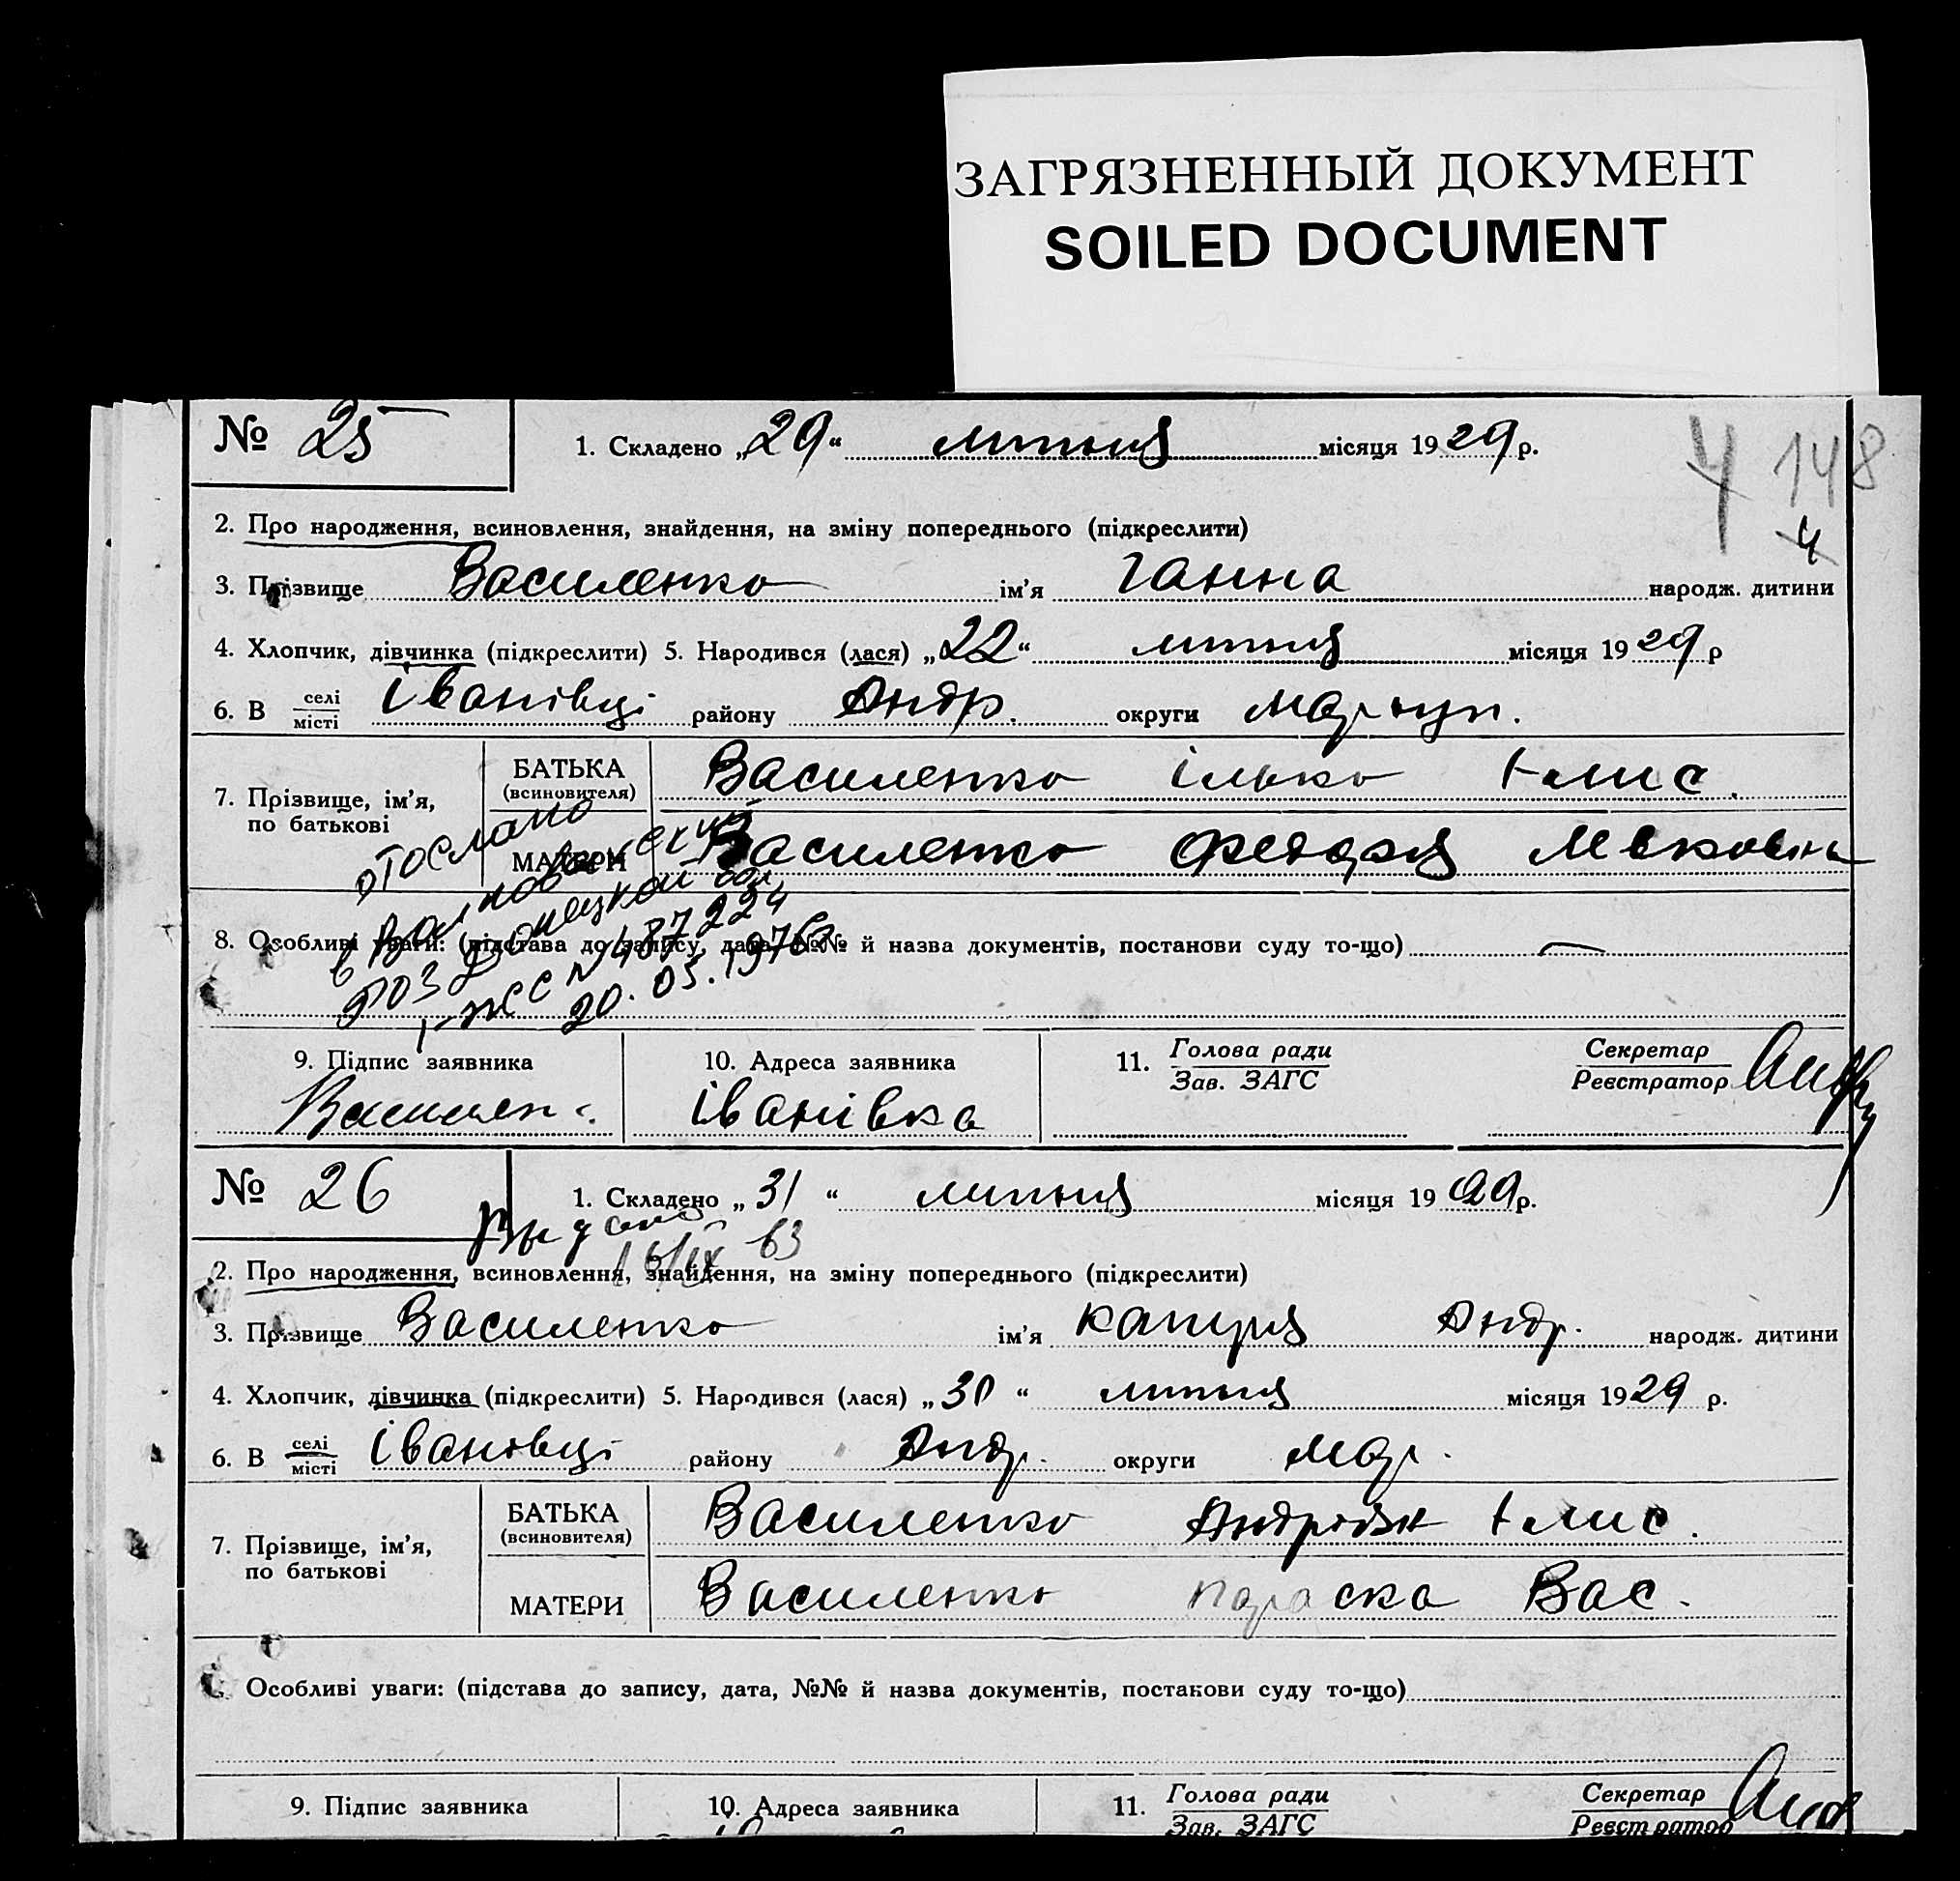 ЗАГРЯЗНЕННЫЙ ДОКУМЕНТ
SOILED DOCUMENT
№ 25
1. Складено „29“ липня місяця 1929 р.
4 148
4
2. Про народження, всиновлення, знайдення, на зміну попереднього (підкреслити)
3. Прізвище Василенко ім’я Ганна народж. дитини
4. Хлопчик, дівчинка (підкреслити) 5. Народився (лася) „22“ липня місяця 1929 р
6. В селі місті Іванівці району Андр. округи Маріуп.
7. Прізвище, ім’я, по батькові
БАТЬКА (всиновителя) Василенко Ілько
МАТЕРИ Василенко Федоря
отослано
в Волновахский
ПОЗ Донецкой обл
1-ЖС № 487224
20.05.1976
8. Особливі уваги: (підстава до запису, дата, №№ й назва документів, постанови суду то-що) —
9. Підпис заявника
10. Адреса заявника
11. Голова ради Зав. ЗАГС
Секретар Реєстратор
Василен
Іванівка
№ 26
1. Складено „31“ липня місяця 1929 р.
Выдано
16/IX 63
2. Про народження, всиновлення, знайдення, на зміну попереднього (підкреслити)
3. Прізвище Василенко ім’я Андр. народж. дитини
4. Хлопчик, дівчинка (підкреслити) 5. Народився (лася) „30“ липня місяця 1929 р.
6. В селі місті Іванівці району Андр. округи Мар.
7. Прізвище, ім’я, по батькові
БАТЬКА (всиновителя) Василенко
МАТЕРИ Василенко Параска Вас.
Особливі уваги: (підстава до запису, дата, №№ й назва документів, постанови суду то-що)
9. Підпис заявника
10. Адреса заявника
11. Голова ради Зав. ЗАГС
Секретар Реєстратор